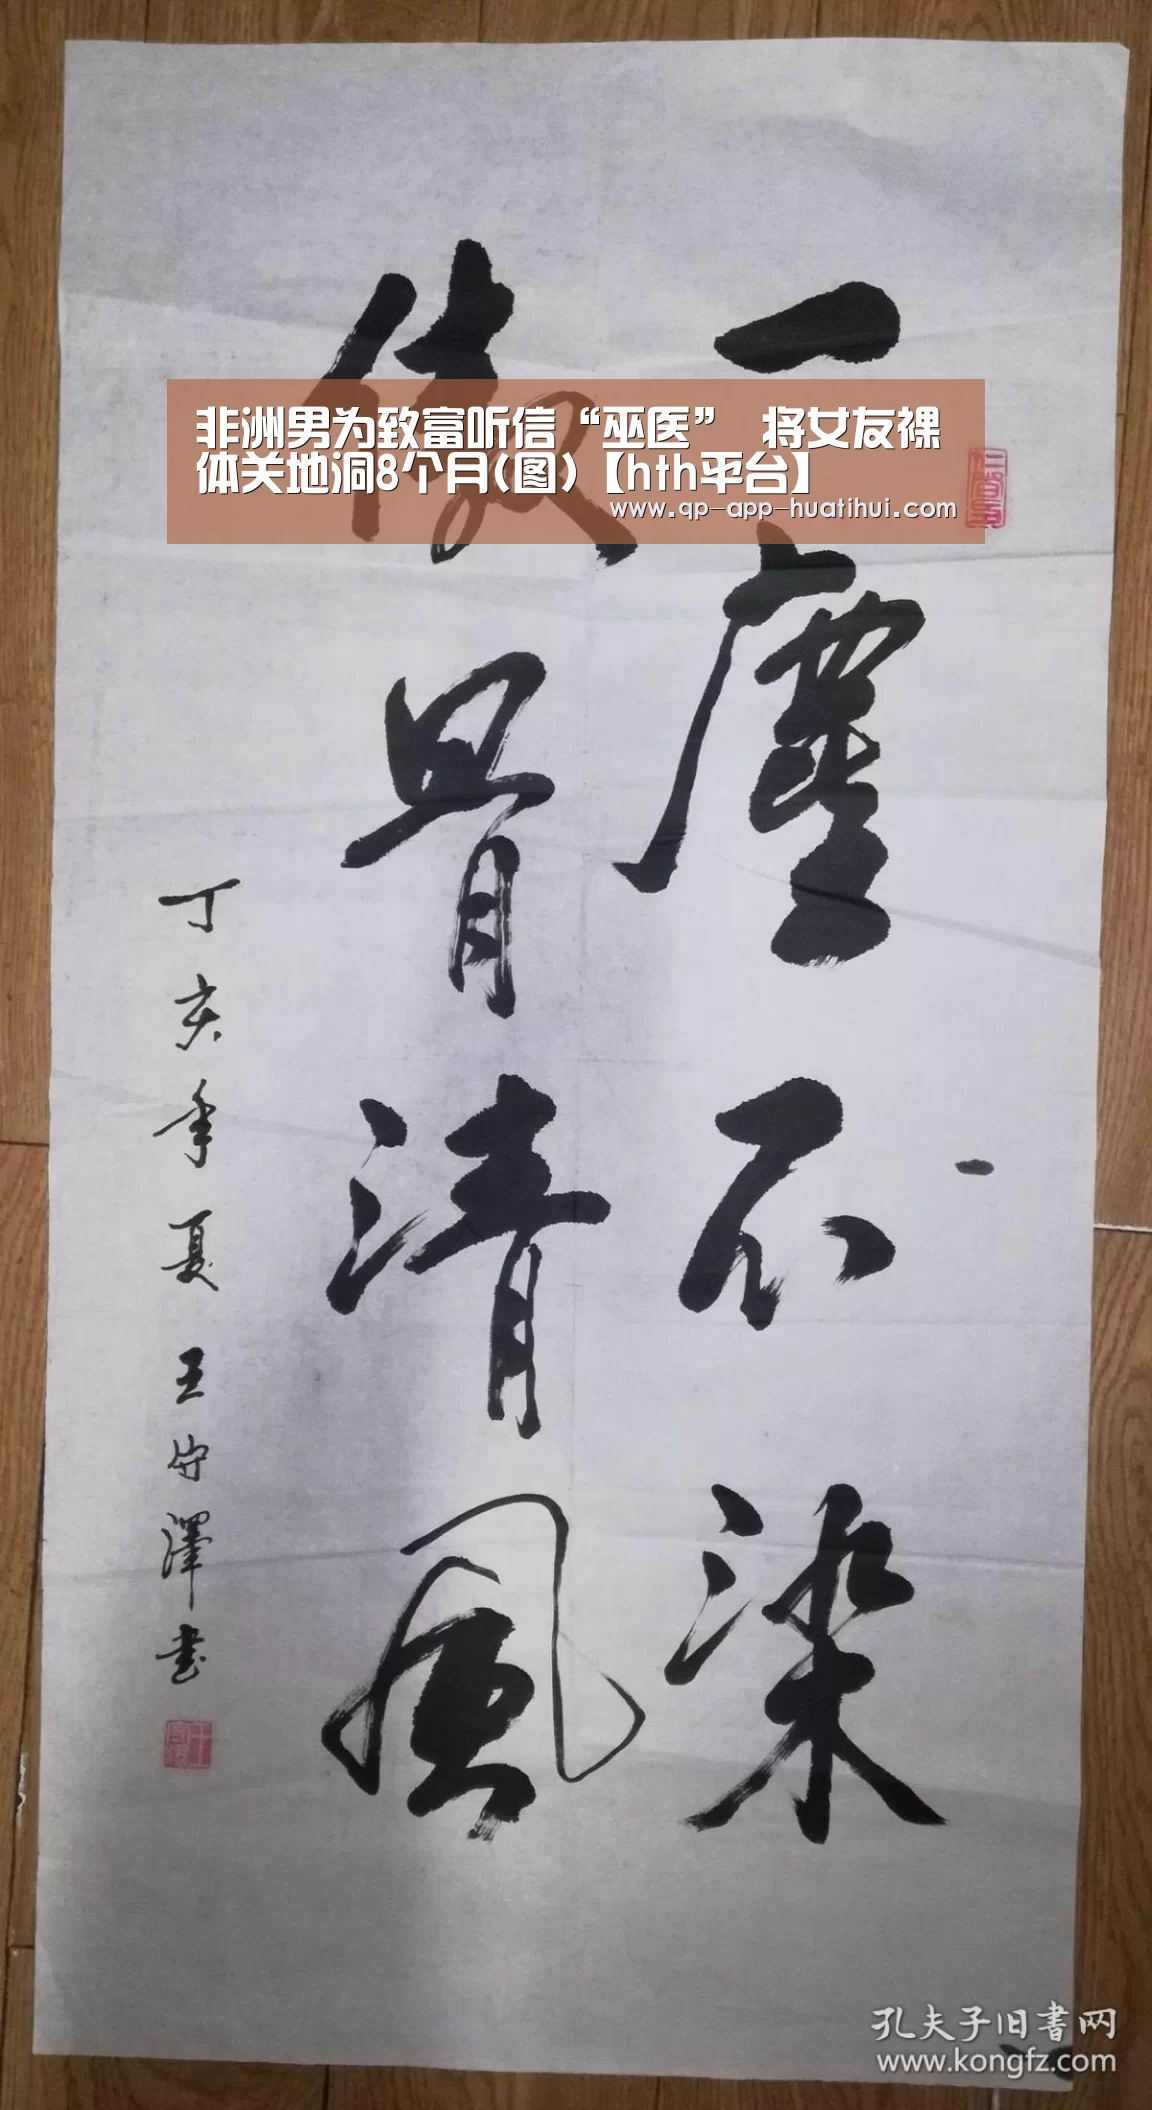 一塵不染
傲骨清風
丁亥年夏王守澤书
非洲男为致富听信“巫医” 将女友裸
体关地洞8个月(图)【hth平台】
www.qp-app-huatihui.com
孔夫子旧书网
www.kongfz.com